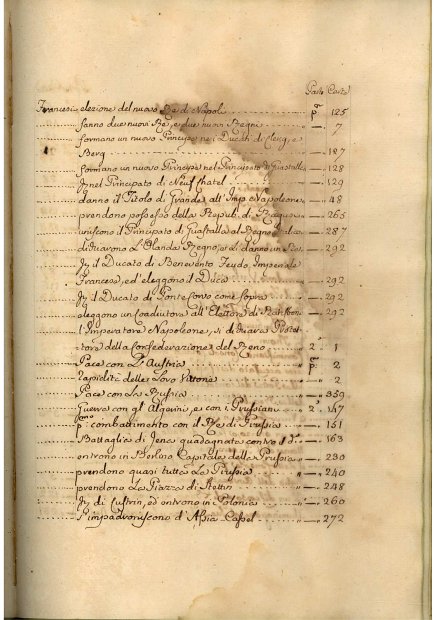 Parte Carte
Francesi elezione del nuovo Re di Napoli p.a 125
fanno due nuovi Re, e due nuovi Regni 7
formano un nuovo Principe nei Ducati di Cleves, e
Berg 187
formano un nuovo Principe nel Principato di Guastalla 128
Jn nel Principato di Neuf Chatel 129
danno il Titolo di Grande all' Imp. Napoleone 48
prendono possesso della Repub. di Ragusa 265
uniscono il Principato di Guastalla al Regno Ital. 287
dichiarono L'Olanda Regno, e Li danno un Re 292
Jn il Ducato di Benevento Feudo Imperiale
Francese, ed' eleggono il Duca 292
Jn il Ducato di Ponte Corvo come sopra 292
eleggono un Coadiutore all' Elettore di 292
l'Imperatore Napoleone, si dichiara Protet
tore della Confederazione del Reno 2 1
Pace con L'Austria p.a 2
rapidità delle Loro Vittorie 2
Pace con La Russia 359
Guerra con gl' Algerini, e con i Prussiani 2 147
p.mo combattimento con il Re di Prussia 151
Battaglia di Jena guadagnata contro il d.o 163
entrono in Berlino Capitale della Prussia 230
prendono quasi tutta La Prussia 240
prendono La Piazza di Stettin 248
Jn di Custrin, ed entrono in Polonia 260
s'impadroniscono d'Assia Cassel 272